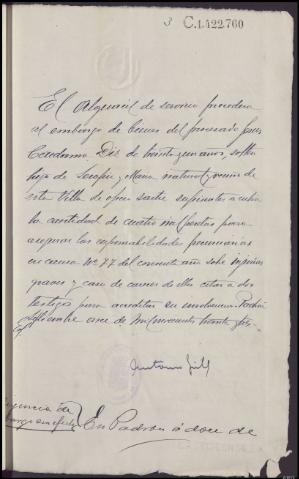 3 C.1.422.760
El Alguacil de servicio procederá
al embargo de bienes del procesado
de veintiun años, soltero
hijo de Serafin y Maria natural y vecino de
esta Villa de oficio sastre suficientes a cubrir
la cantidad de cuatro mil pesetas para
asegurar las responsabilidades pecuniarias
en causa Nº 77 del corriente año sobre injurias
graves y caso de carecer de ellos citar a dos
testigos para acreditar su insolvencia. Padrón
Septiembre once de mil novecientos treinta y
Antonio
En Padron á doce de